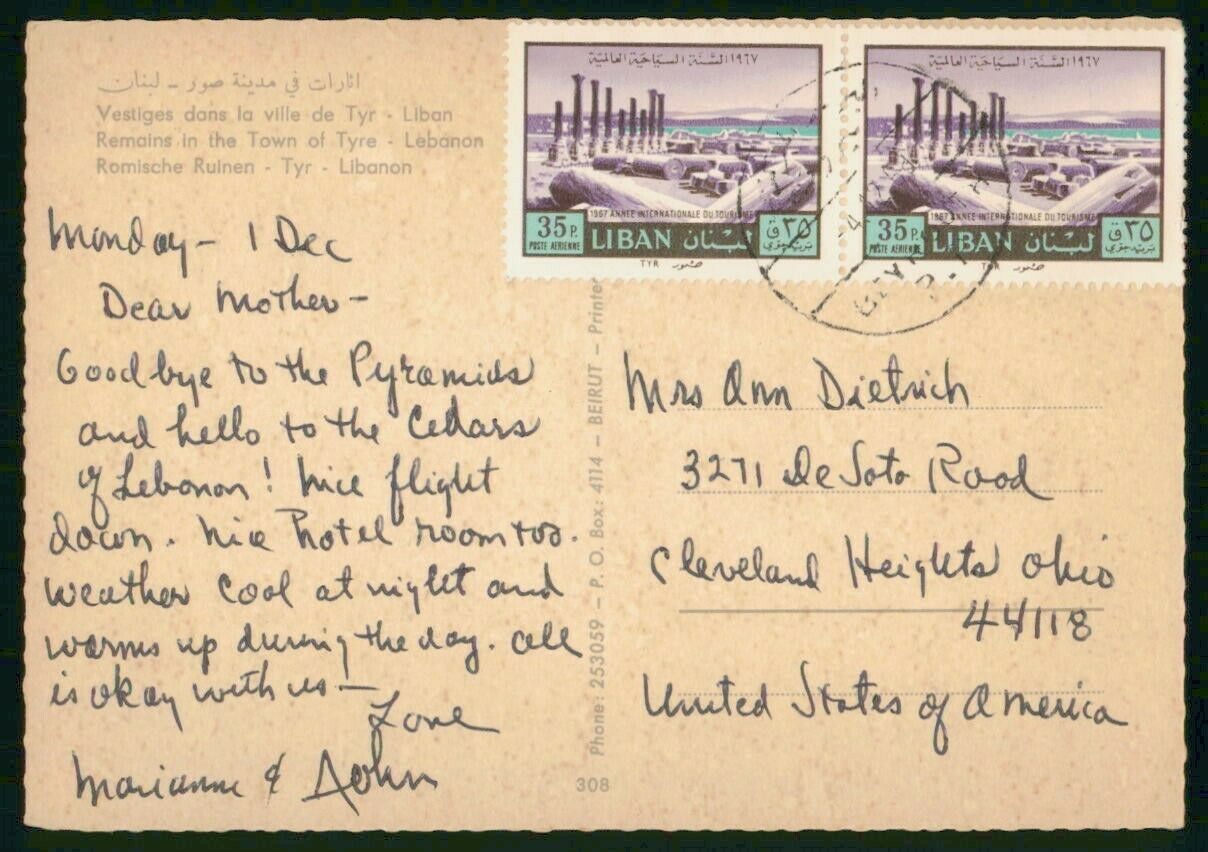 اثارات في مدينة صور - لبنان
Vestiges dans la ville de Tyr - Liban
Remains in the Town of Tyre - Lebanon
Romische Ruinen - Tyr - Libanon
Monday - 1 Dec
Dear Mother -
Goodbye to the Pyramids
and hello to the Cedars
of Lebanon! Nice flight
down. Nice hotel room too.
Weather cool at night and
warms up during the day. All
is okay with us -
Love
Marianne & John
Phone: 253059 - P. O. Box: 4114 - BEIRUT - Printer
308
١٩٦٧ السنة السياحية العالمية
1967 ANNEE INTERNATIONALE DU TOURISME
35 P.
POSTE AERIENNE
LIBAN لبنان
٣٥ ق
بريد جوي
TYR صور
١٩٦٧ السنة السياحية العالمية
1967 ANNEE INTERNATIONALE DU TOURISME
35 P.
POSTE AERIENNE
LIBAN لبنان
٣٥ ق
بريد جوي
TYR صور
Mrs Ann Dietrich
3271 De Soto Road
Cleveland Heights Ohio
44118
United States of America